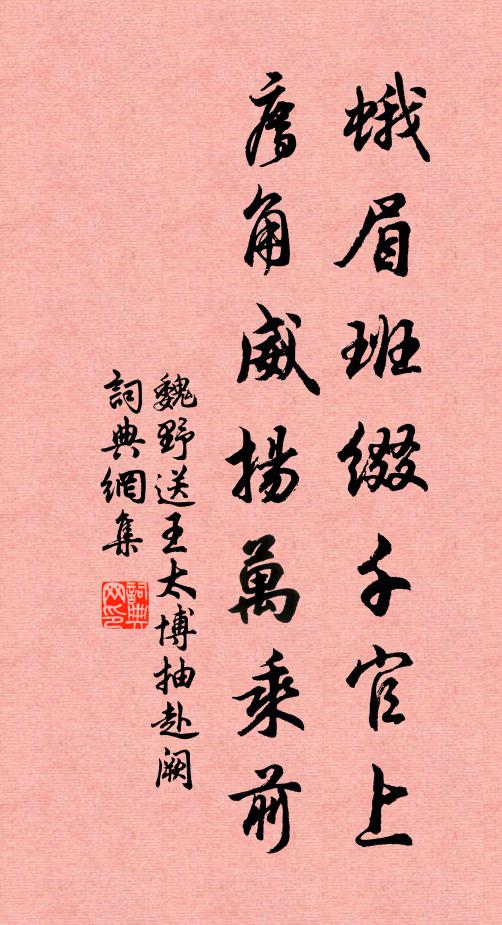 蛾眉班綴千官上
廌角威揚萬乘前
魏野送王太博抽赴闕
詞典網集
詞典
网印